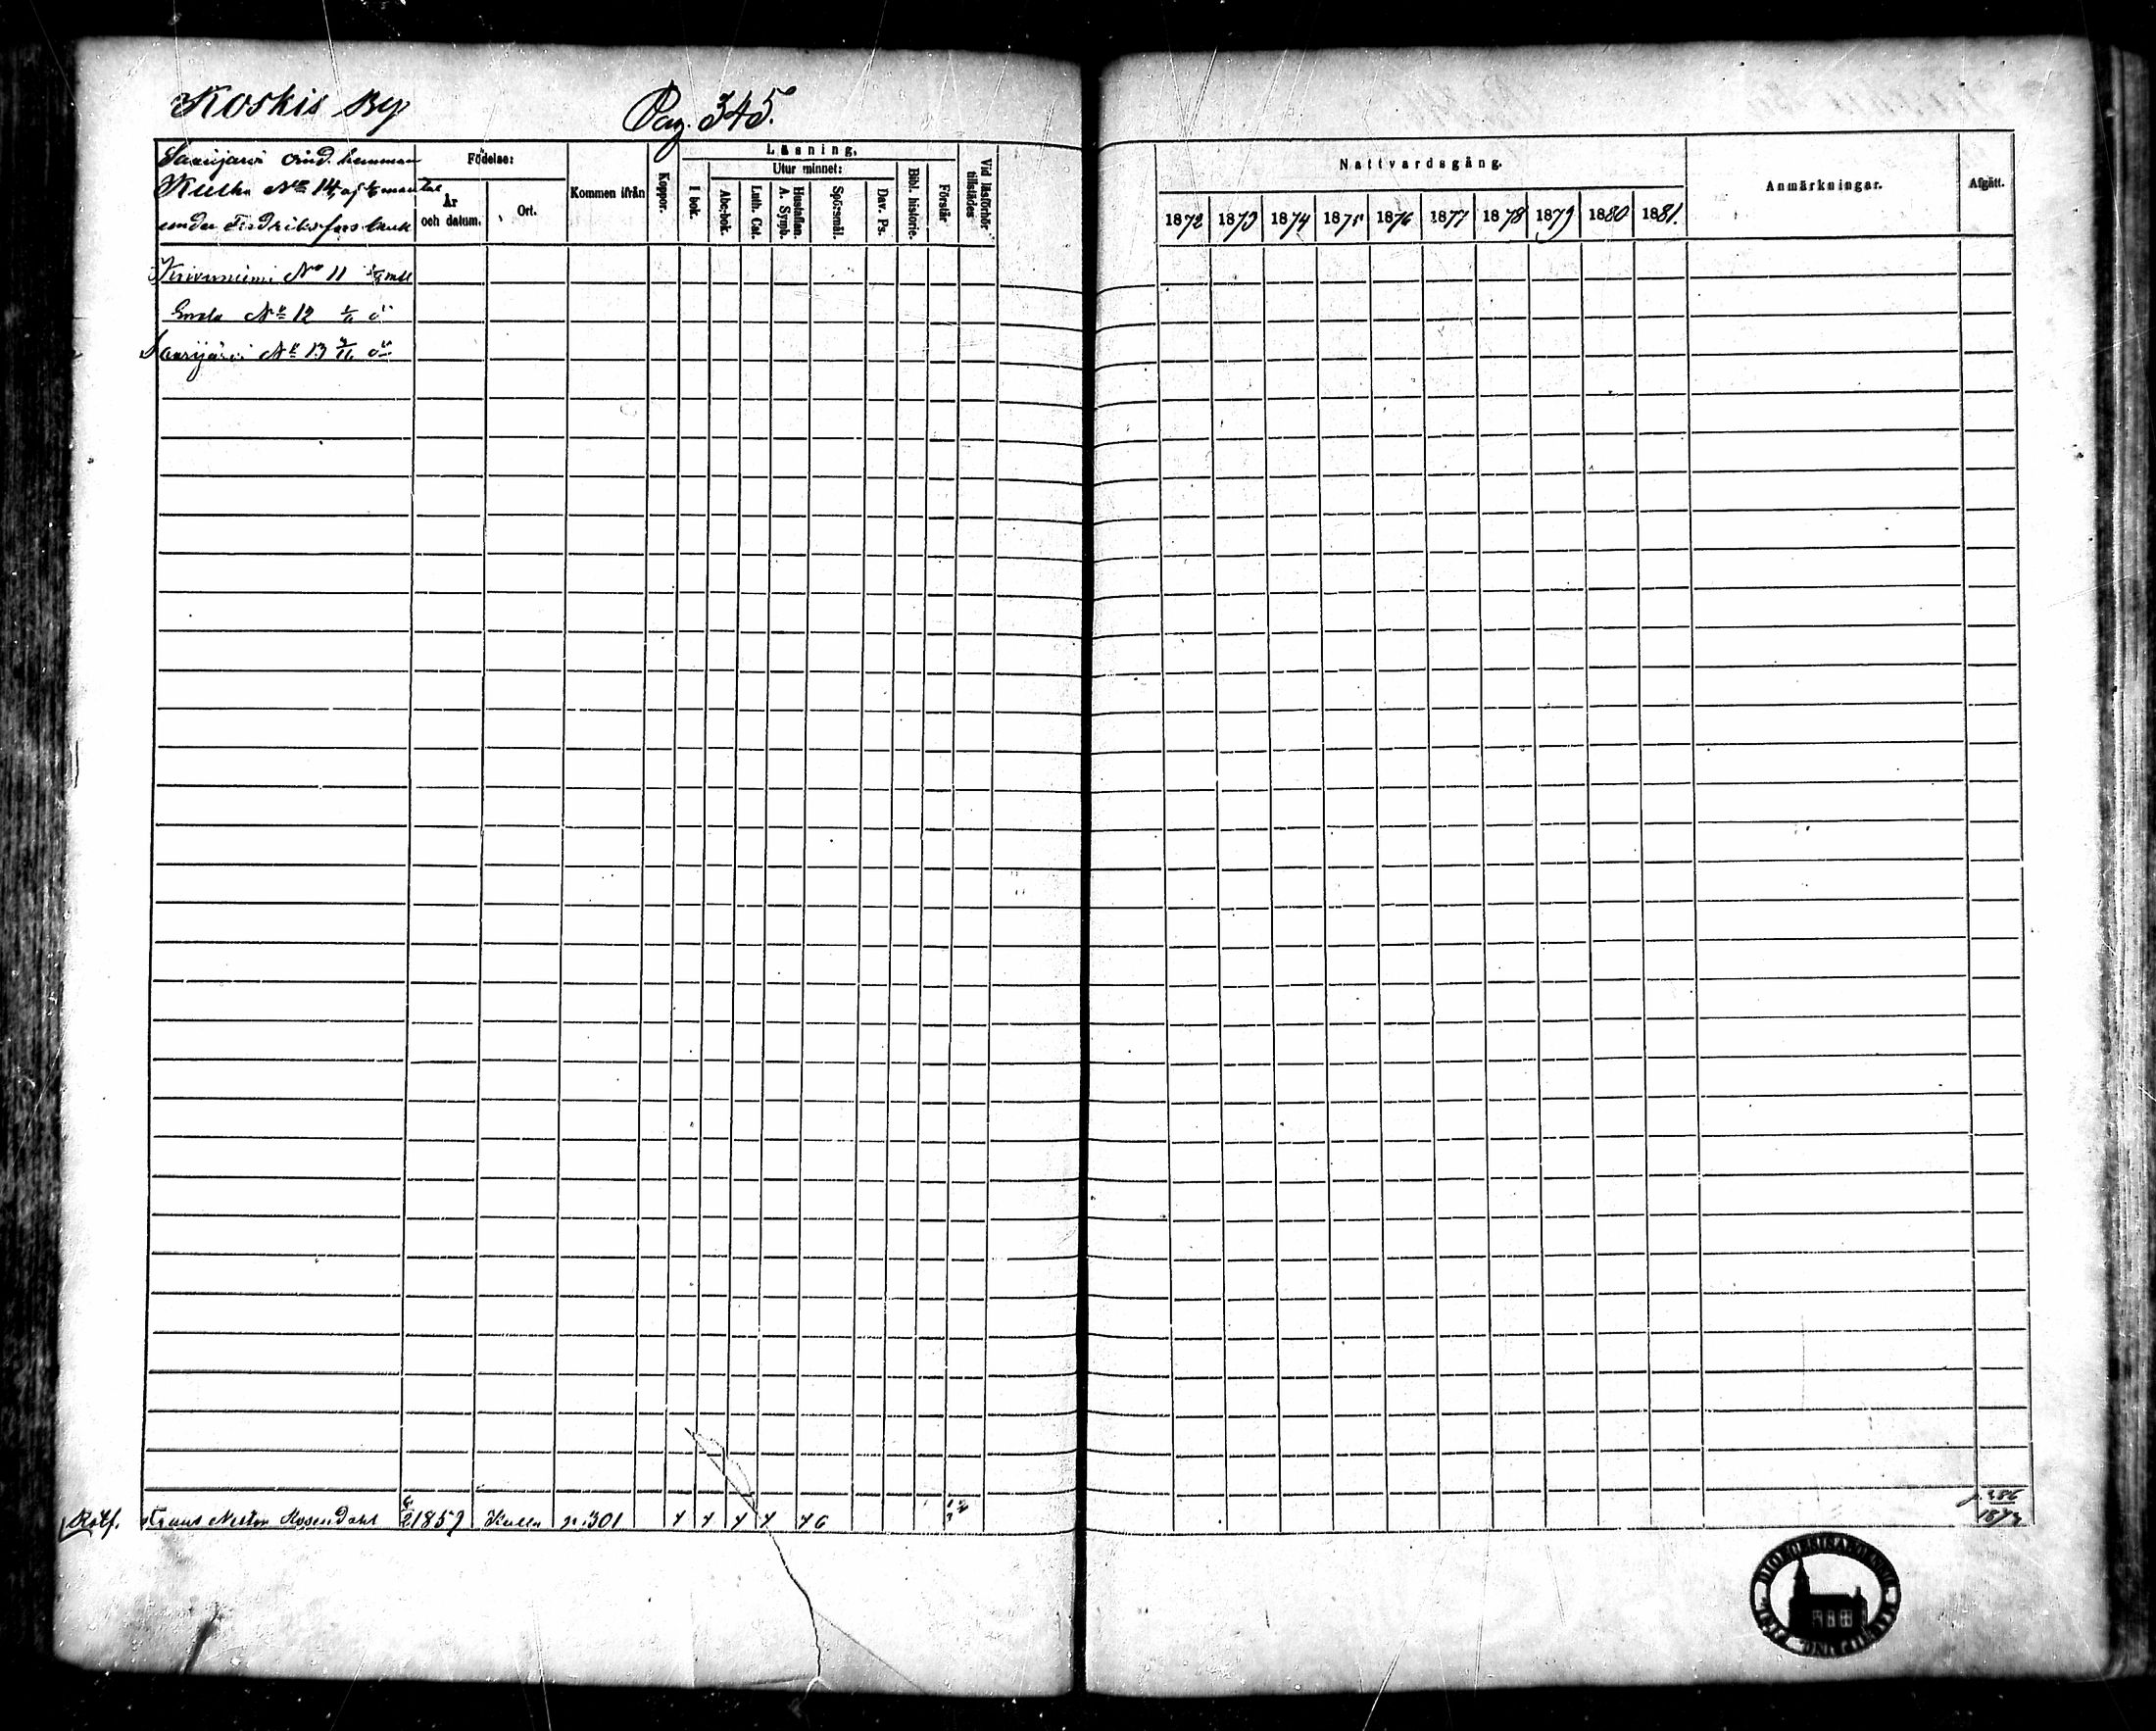 Koskis By
Pag. 345.
Saarijärvi ind. hemman
Kulku N:o 14, af mantal
under Fredriksfors bruk
Födelse:
År och datum.
Ort.
Kommen ifrån
Koppor.
Läsning.
I bok.
Utur minnet:
Abc-bok.
Luth. Cat.
Hustaflan. A. Symb.
Spörsmål.
Dav. Ps.
Bibl. historie.
Förstår
Vid läsförhör tillstädes
Nattvardsgång.
1872 1873 1874 1875 1876 1877 1878 1879 1880 1881.
Anmärkningar.
Afgått.
N:o 11
N:o 12
Saarijärvi N:o 13
Frans Nestor Rosendahl 1857 p. 301